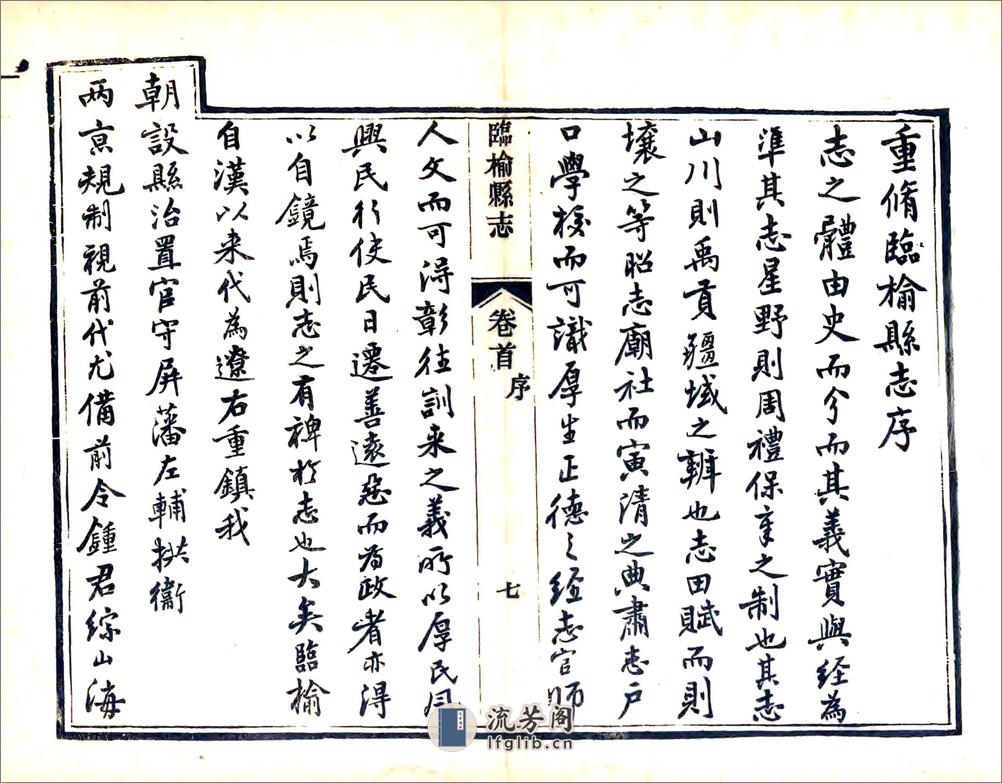 重脩臨榆縣志序
志之體由史而分而其義實與經為
準其志星野則周禮保章之制也其志
山川則禹貢疆域之辨也志田賦而則
壤之等昭志廟社而寅清之典肅志户
口學校而可識厚生正德之經志官師
臨榆縣志
卷首
序
七
人文而可得彰往訓来之義所以厚民風
興民行使民日遷善遠惡而為政者亦得
以自鏡焉則志之有裨於志也大矣臨榆
自漢以来代為遼右重鎮我
朝設縣治置官守屏藩左輔拱衞
兩京規制視前代尤備前令鍾君綜山海
流芳阁
lfglib.cn